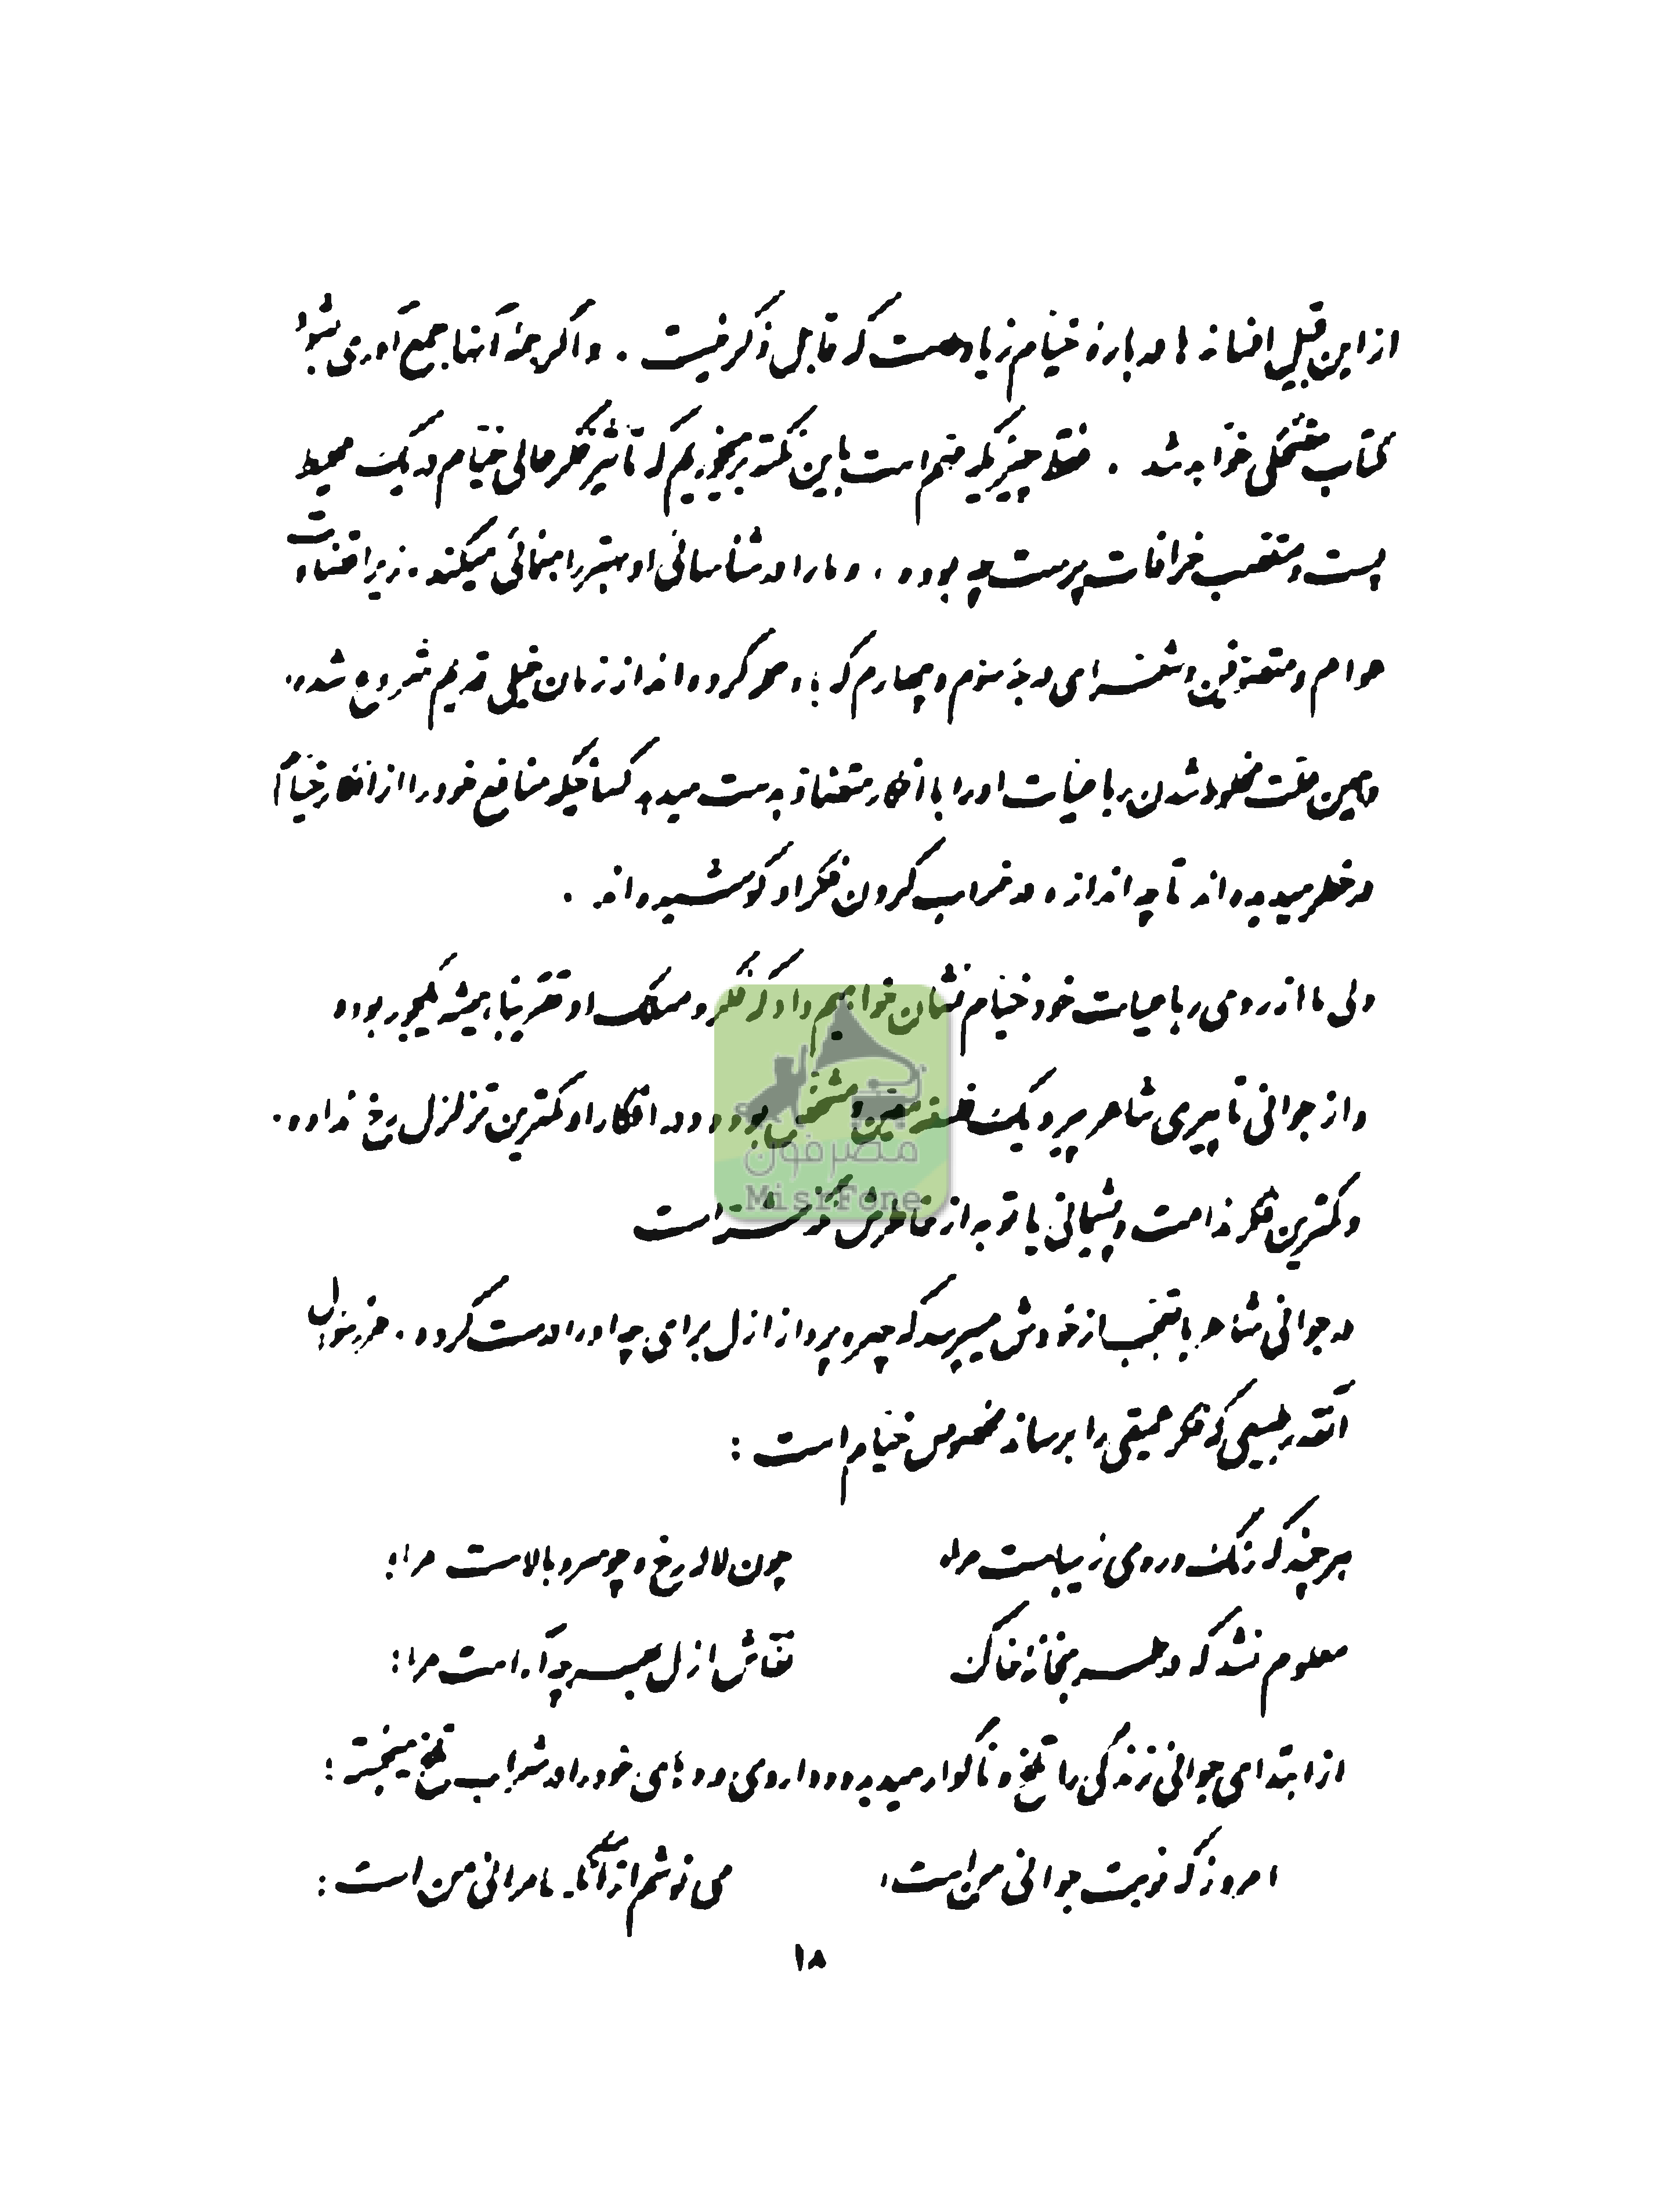 از این قبیل افسانه ها درباره خیام زیاد است که قابل ذکر نیست . و اگر همهٔ آنها جمع آوری بشود
کتاب مضحکی خواهد شد . فقط چیزیکه مهم است باین نکته برمیخوریم که تأثیر فکر عالی خیام در یک محیط
پست و متعصب خرافات پرست چه بوده ، و ما را در شناسائی او بهتر راهنمائی میکند . زیرا قضاوت
عوام و متصوفین و شعرای درجهٔ سوم و چهارم که باو حمله کرده اند از زمان خیلی قدیم شروع شده،
و همین علت مخلوط شدن رباعیات او را با افکار متضاد بدست میدهد کسانیکه منافع خود را از افکار خیام
در خطر میدیده اند تا چه اندازه در خراب کردن فکر او کوشیده اند .
ولی ما از روی رباعیات خود خیام نشان خواهیم داد که فکر و مسلک او تقریباً همیشه یکجور بوده
و از جوانی تا پیری شاعر پیرو یک فلسفه معین و مشخص بوده و در افکار او کمترین تزلزل رخ نداده.
و کمترین فکر ندامت و پشیمانی یا توبه از خاطرش نگذشته است
در جوانی شاعر با تعجب از خودش میپرسد که چهره پرداز ازل برای چه او را درست کرده .
آنقدر طبیعی که فکر عمیقی را برساند مخصوص خیام است :
هر چند که رنگ و روی زیباست مرا،
چون لاله رخ و چو سرو بالاست مرا؛
معلوم نشد که در طربخانه خاک
نقاش ازل بهر چه آراست مرا؛
از ابتدای جوانی زندگی را تلخ و ناگوار میدیده و داروی دردهای خود را در شراب تلخ میجسته :
امروز که نوبت جوانی من است،
می نوشم از آنکه کامرانی من است :
۱۸
مصرفون
MisrFone